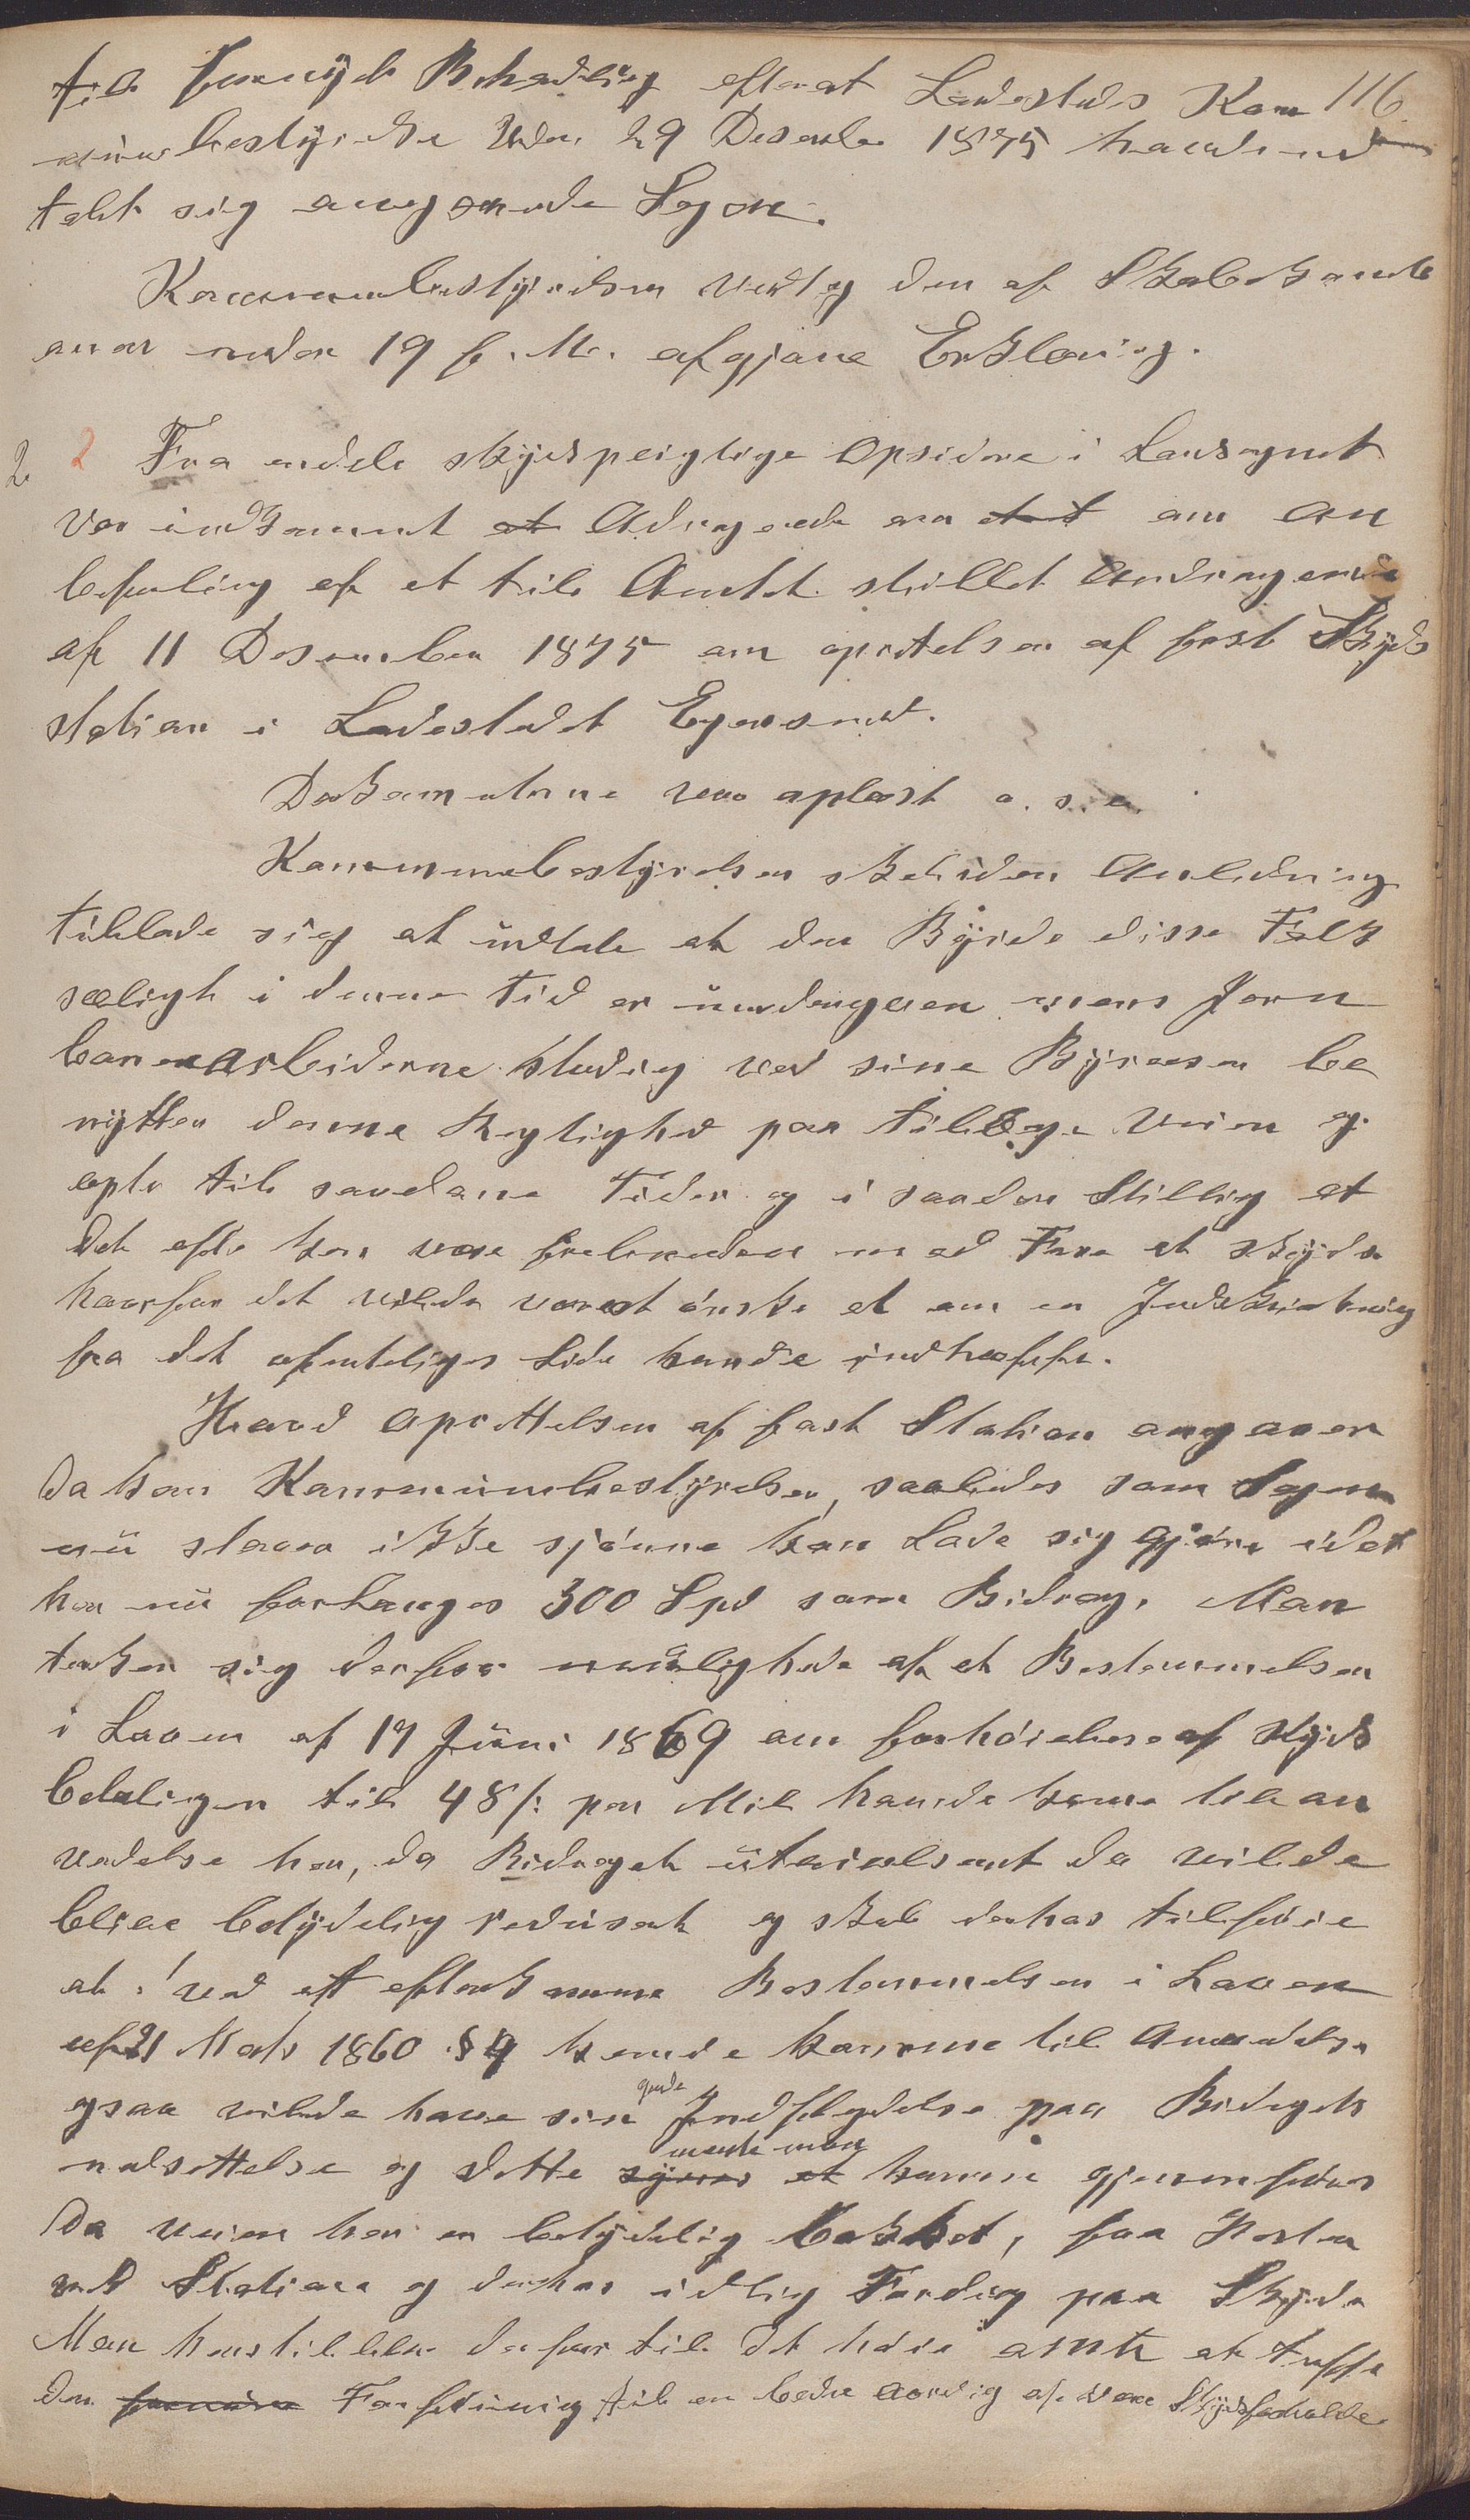 til fornyet Behandling efterat Ladestedets Kom 116
munebestyrelse under 29 Desember 1875 havde ud
talt sig angaaende Sagen.
Kommunebestyrelsen vedtog den af Skolekomite
en under 19 f. M. afgivne Erklæring.
2 2 Fra endel skydspligtige Opsidere i Landsognet
var indkommet et Adragende om an
befaling af et til Amtet stillet Andragende
af 11 Desember 1875 om oprettelsen af fast Skyds
station i Ladestedet Egersund.
Dokumenterne var oplæst o. s. v.
Kommunebestyrelsen skal iden Anledning
tillade sig at udtale at den Byrde disse Folk
særligt i denne Tid er undergiven mens Jern
banearbeiderne stadig ved sine Reiser be
nytter denne Leilighed paa tillægs Veien og
ofte til saadanne Tider og i saadan Stilling at
det ofte kan være forbunden med Fare at skydse
hvorfor det vilde været ønske at om en Indskrænkning
fra det offentliges Side kunde indtræffe.
Hvad Oprettelsen af fast Station angaaer
da kan Kommunebestyrelsen, saaledes som Sagen
nu staaer ikke skjønne kan Lade sig gjøre idet
her nu forlanges 300 Spd som Bidrag. Man
tænker sig derfor muligheden af at Bestemmelsen
i Loven af 17 Juni 1869 om forhøielse af Skyds
betalingen til 48 /: per Mil kunde komme til an
vendelse her, da Bidraget utvivlsomt da vilde
blive betydelig redusert og skal derhos tilføie
at ved at efterkomme Bestemmelsen i Loven
af 21 Marts 1860 § 9 kunde komme til Anvendelse
ogsaa vilde have sin gode Indflydelse paa Bidragets
nedsettelse og dette synes mente man at kunne gjennemføres
Da Veien her er betydelig bakket, faa Heste
ved Stationen og derhos idelig Færding paa Skyds
Man henstilller derfor til det høie amt at træffe
den fornødne Forføining til en bedre Ordnig af vore Skydsforholde